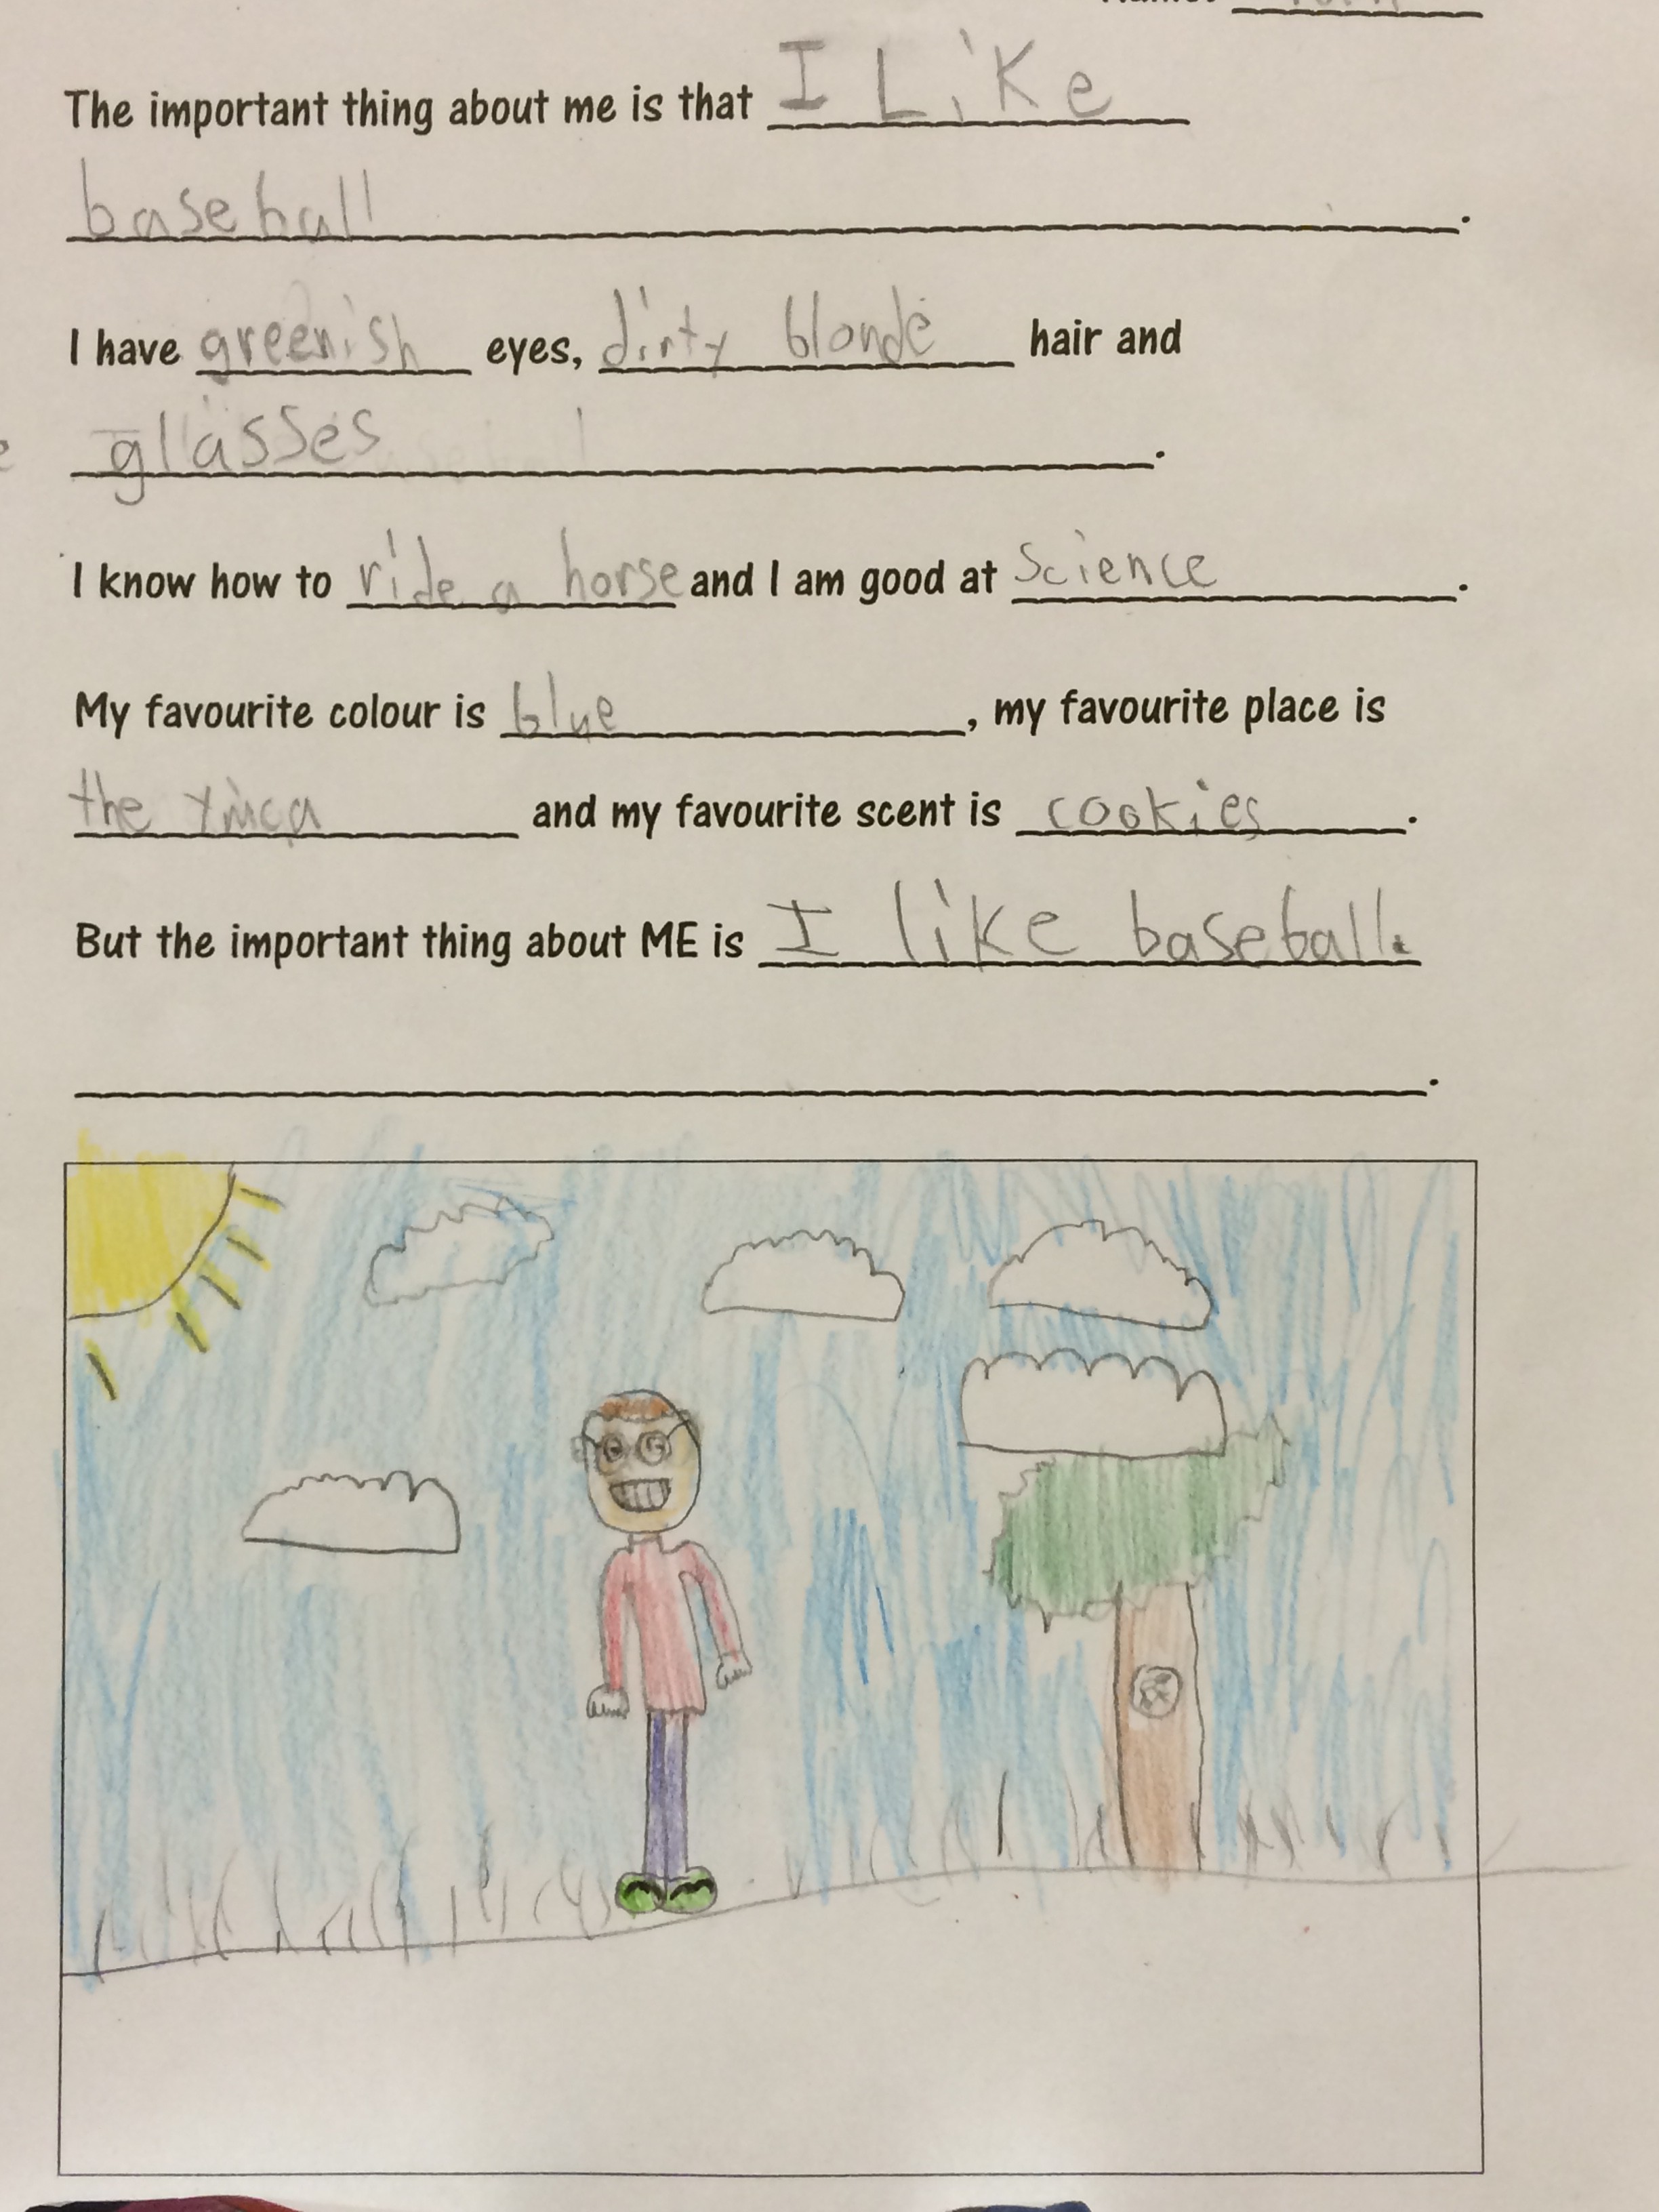 The important thing about me is that I Like
baseball.
I have greenish eyes, dirty blonde hair and
glasses.
I know how to ride a horse and I am good at Science.
My favourite colour is blue, my favourite place is
the ymca and my favourite scent is cookies.
But the important thing about ME is I like baseball.
.